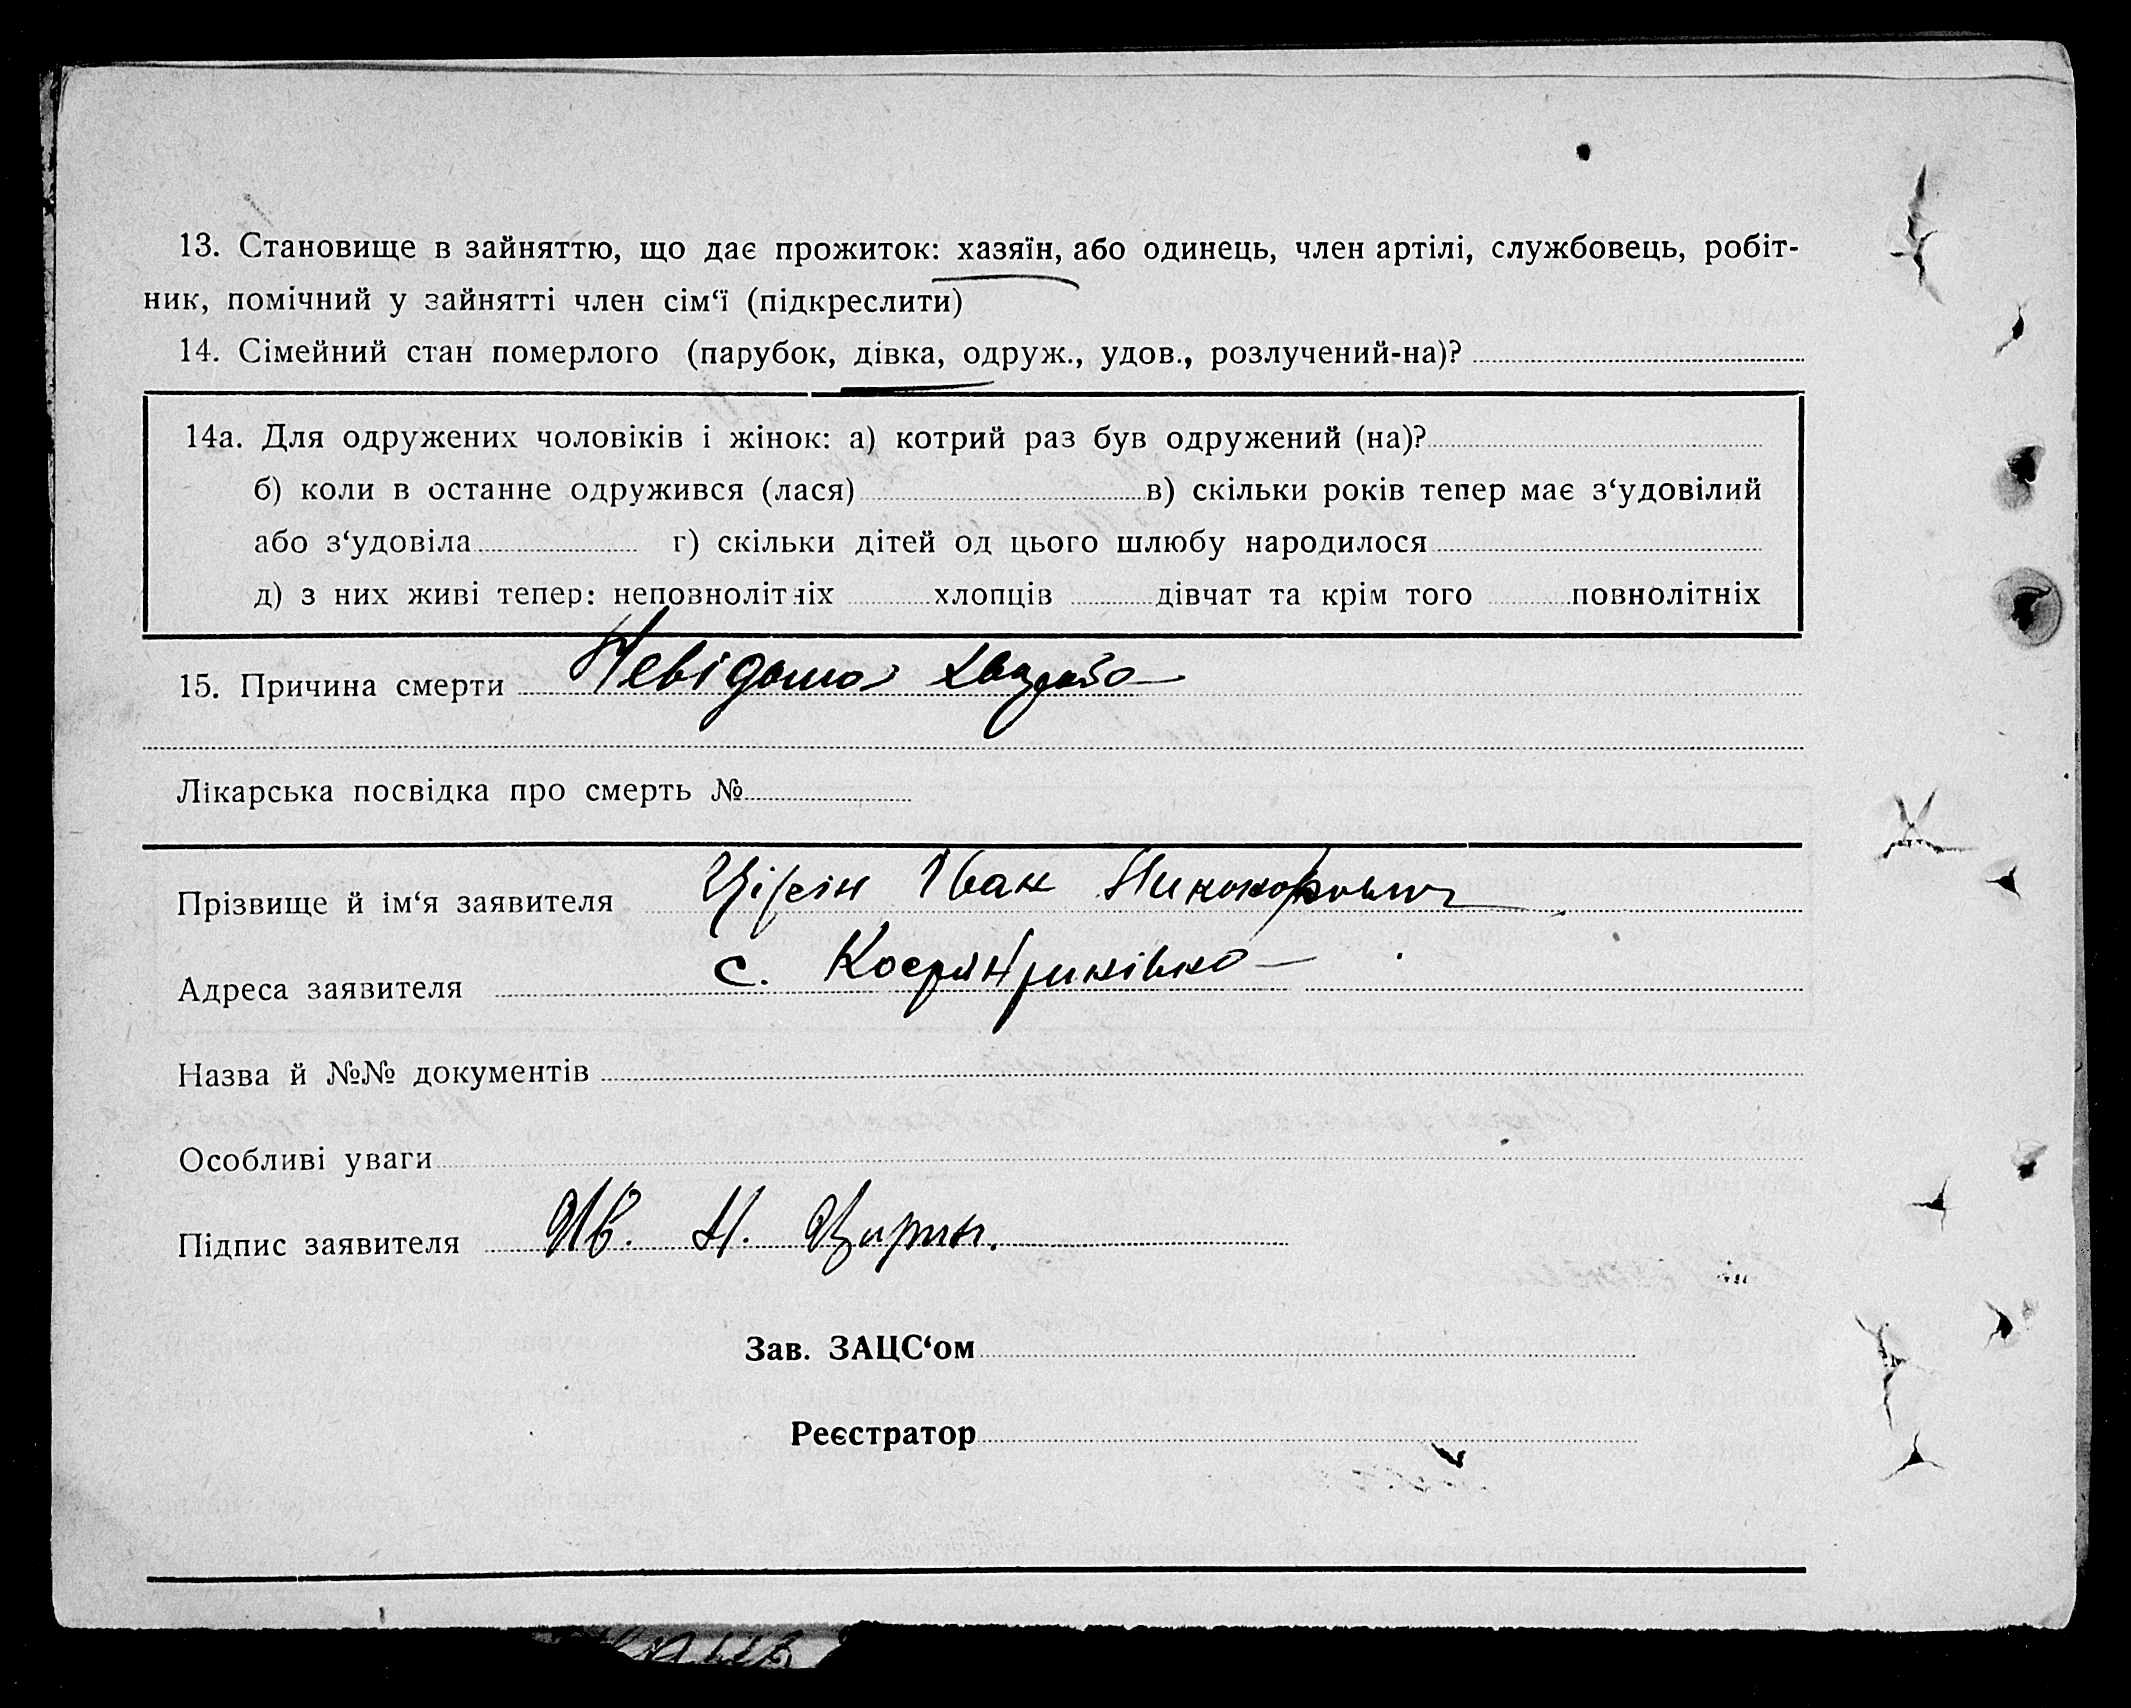 13. Становище в зайняттю, що дає прожиток: хазяїн, або одинець, член артілі, службовець, робіт-
ник, помічний у зайнятті член сім‘ї (підкреслити)
14. Сімейний стан померлого (парубок, дівка, одруж., удов., розлучений-на)?
14а. Для одружених чоловіків і жінок: а) котрий раз був одружений (на)?
б) коли в останне одружився (лася) в) скільки років тепер має з‘удовілий
або з‘удовіла г) скільки дітей од цього шлюбу народилося
д) з них живі тепер: неповнолітніх хлопців дівчат та крім того повнолітніх
15. Причина смерти Невідома хвороба
Лікарська посвідка про смерть №
Прізвище й ім‘я заявителя Іван Никонорович
Адреса заявителя с.
Назва й №№ документів
Особливі уваги
Підпис заявителя Ив. Н. Цирин.
Зав. ЗАЦС‘ом
Реєстратор